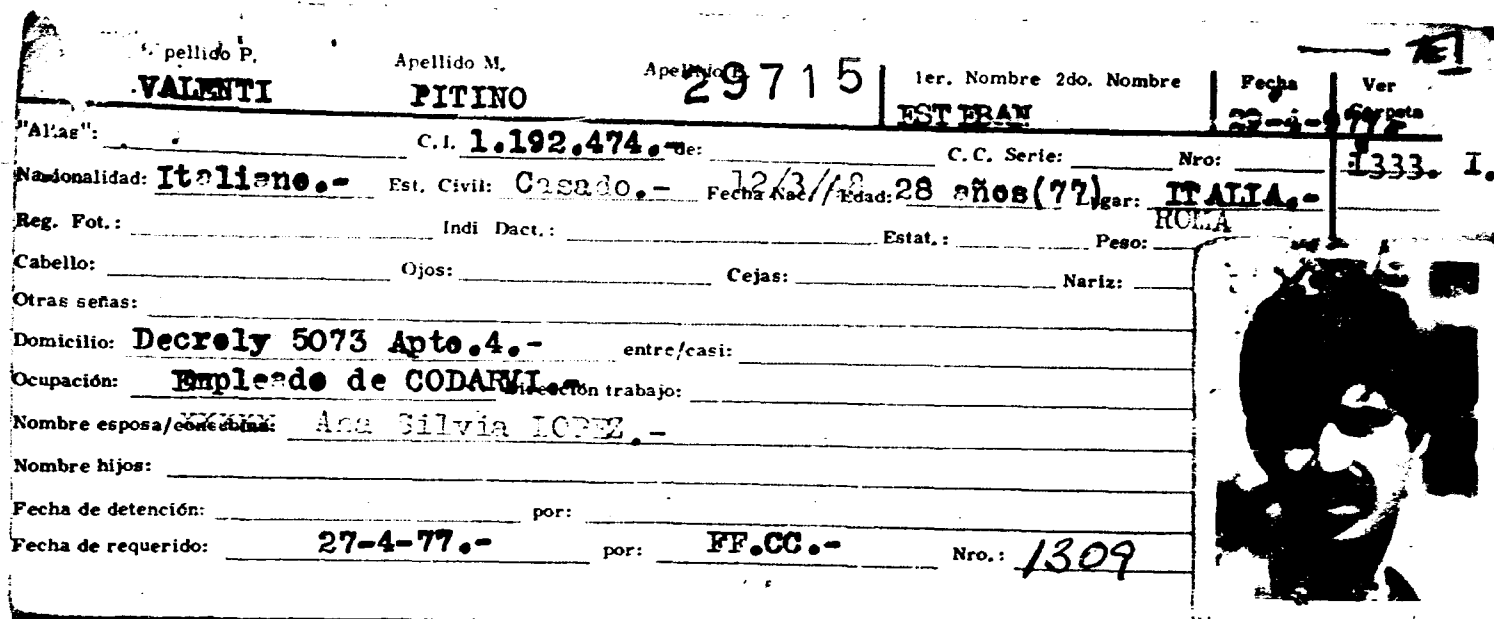 Apellido P. Apellido M. Apellido E. 29715 1er. Nombre 2do. Nombre Fecha Ver Carpeta
VALENTI PITINO ESTEBAN
"Alias": C.I. 1.192.474.- de: C.C. Serie: Nro: 1333. I.
Nacionalidad: Italiano.- Est. Civil: Casado.- Fecha Nac. 12/3/48 Edad: 28 años(77) Lugar: ITALIA.-
ROMA
Reg. Fot.: Indi Dact.: Estat.: Peso:
Cabello: Ojos: Cejas: Nariz:
Otras señas:
Domicilio: Decroly 5073 Apto.4.- entre/casi:
Ocupación: Empleado de CODARVI.- Dirección trabajo:
Nombre esposa/concubina: Ana Silvia LOPEZ.-
Nombre hijos:
Fecha de detención: por:
Fecha de requerido: 27-4-77.- por: FF.CC.- Nro.: 1309